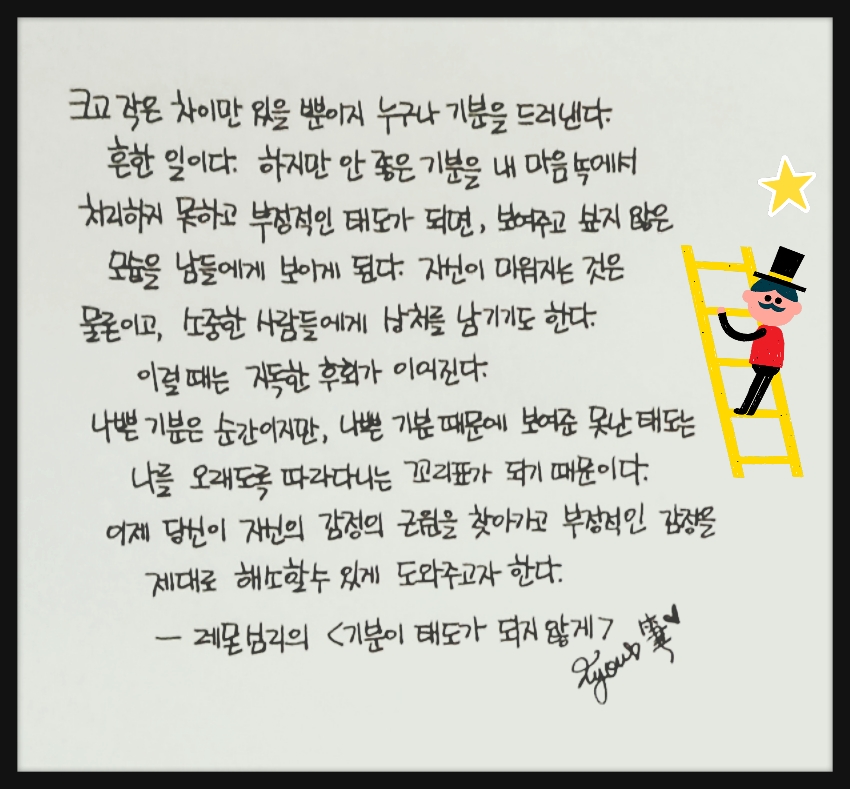 크고 작은 차이만 있을 뿐이지 누구나 기분을 드러낸다.
흔한 일이다. 하지만 안 좋은 기분을 내 마음속에서
처리하지 못하고 부정적인 태도가 되면, 보여주고 싶지 않은
모습을 남들에게 보이게 된다. 자신이 미워지는 것은
물론이고, 소중한 사람들에게 상처를 남기기도 한다.
이럴 때는 지독한 후회가 이어진다.
나쁜 기분은 순간이지만, 나쁜 기분 때문에 보여준 못난 태도는
나를 오래도록 따라다니는 꼬리표가 되기 때문이다.
이제 당신이 자신의 감정의 근원을 찾아가고 부정적인 감정을
제대로 해소할수 있게 도와주고자 한다.
— 레몬심리의 <기분이 태도가 되지 않게>